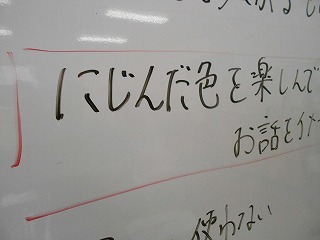 にじんだ色を楽しんで
お話をイメ
使わない